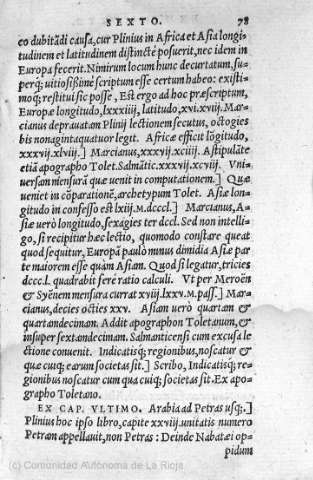 SEXTO. 78
eo dubitãdi causa, cur Plinius in Africa et Asia longi-
tudinem et latitudinem distinctè posuerit, nec idem in
Europa fecerit. Nimirum locum hunc decurtatum, su-
perq; uitiosissimè scriptum esse certum habeo: existi-
moq; restitui sic posse, Est ergo ad hoc præscriptum,
Europæ longitudo, lxxxiiij, latitudo, xvi.xviij. Mar-
cianus deprauatam Plinij lectionem secutus, octogies
bis nonagintaquatuor legit. Africæ efficit lõgitudo,
xxxvij.xlviij.] Marcianus, xxxvij.xciiij. Astipulãte
etiã apographo Tolet. Salmãtic. xxxvij.xcviij. Vni-
uersam mensurã quæ uenit in computationem.] Quæ
ueniet in cõparationẽ, archetypum Tolet. Asiæ lon-
gitudo in confesso est lxiij.M.dcccl.] Marcianus, A-
siæ uerò longitudo, sexagies ter dccl. Sed non intelli-
go, si recipitur hæc lectio, quomodo constare queat
quod sequitur, Europã paulo minus dimidia Asiæ par-
te maiorem esse quàm Asiam. Quod si legatur, tricies
dccc.l. quadrabit ferè ratio calculi. Vt per Meroën
& Syënem mensura currat xviij.lxxv.M.pass.] Mar-
cianus, decies octies xxv. Asiam uerò quartam &
quartamdecimam. Addit apographon Toletanum, &
insuper sextamdecimam. Salmanticensi cum excusa le-
ctione conuenit. Indicatisq; regionibus, noscatur &
quæ cuiq; earum societas sit.] Scribo, Indicatisq; re-
gionibus noscatur cum qua cuiq; societas sit. Ex apo-
grapho Toletano.
EX CAP. VLTIMO. Arabia ad Petras usq;.]
Plinius hoc ipso libro, capite xxviij. unitatis numero
Petram appellauit, non Petras: Deinde Nabatæi op-
pidum
(c) Comunidad Autónoma de La Rioja